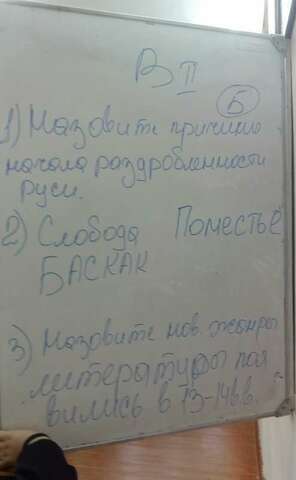 В II
Б
1) Назовите причины
начала раздробленности
руси.
2) Слобода Поместье
БАСКАК
3) Назовите нов. жанры
литературы поя
вились в 13-14в.в.